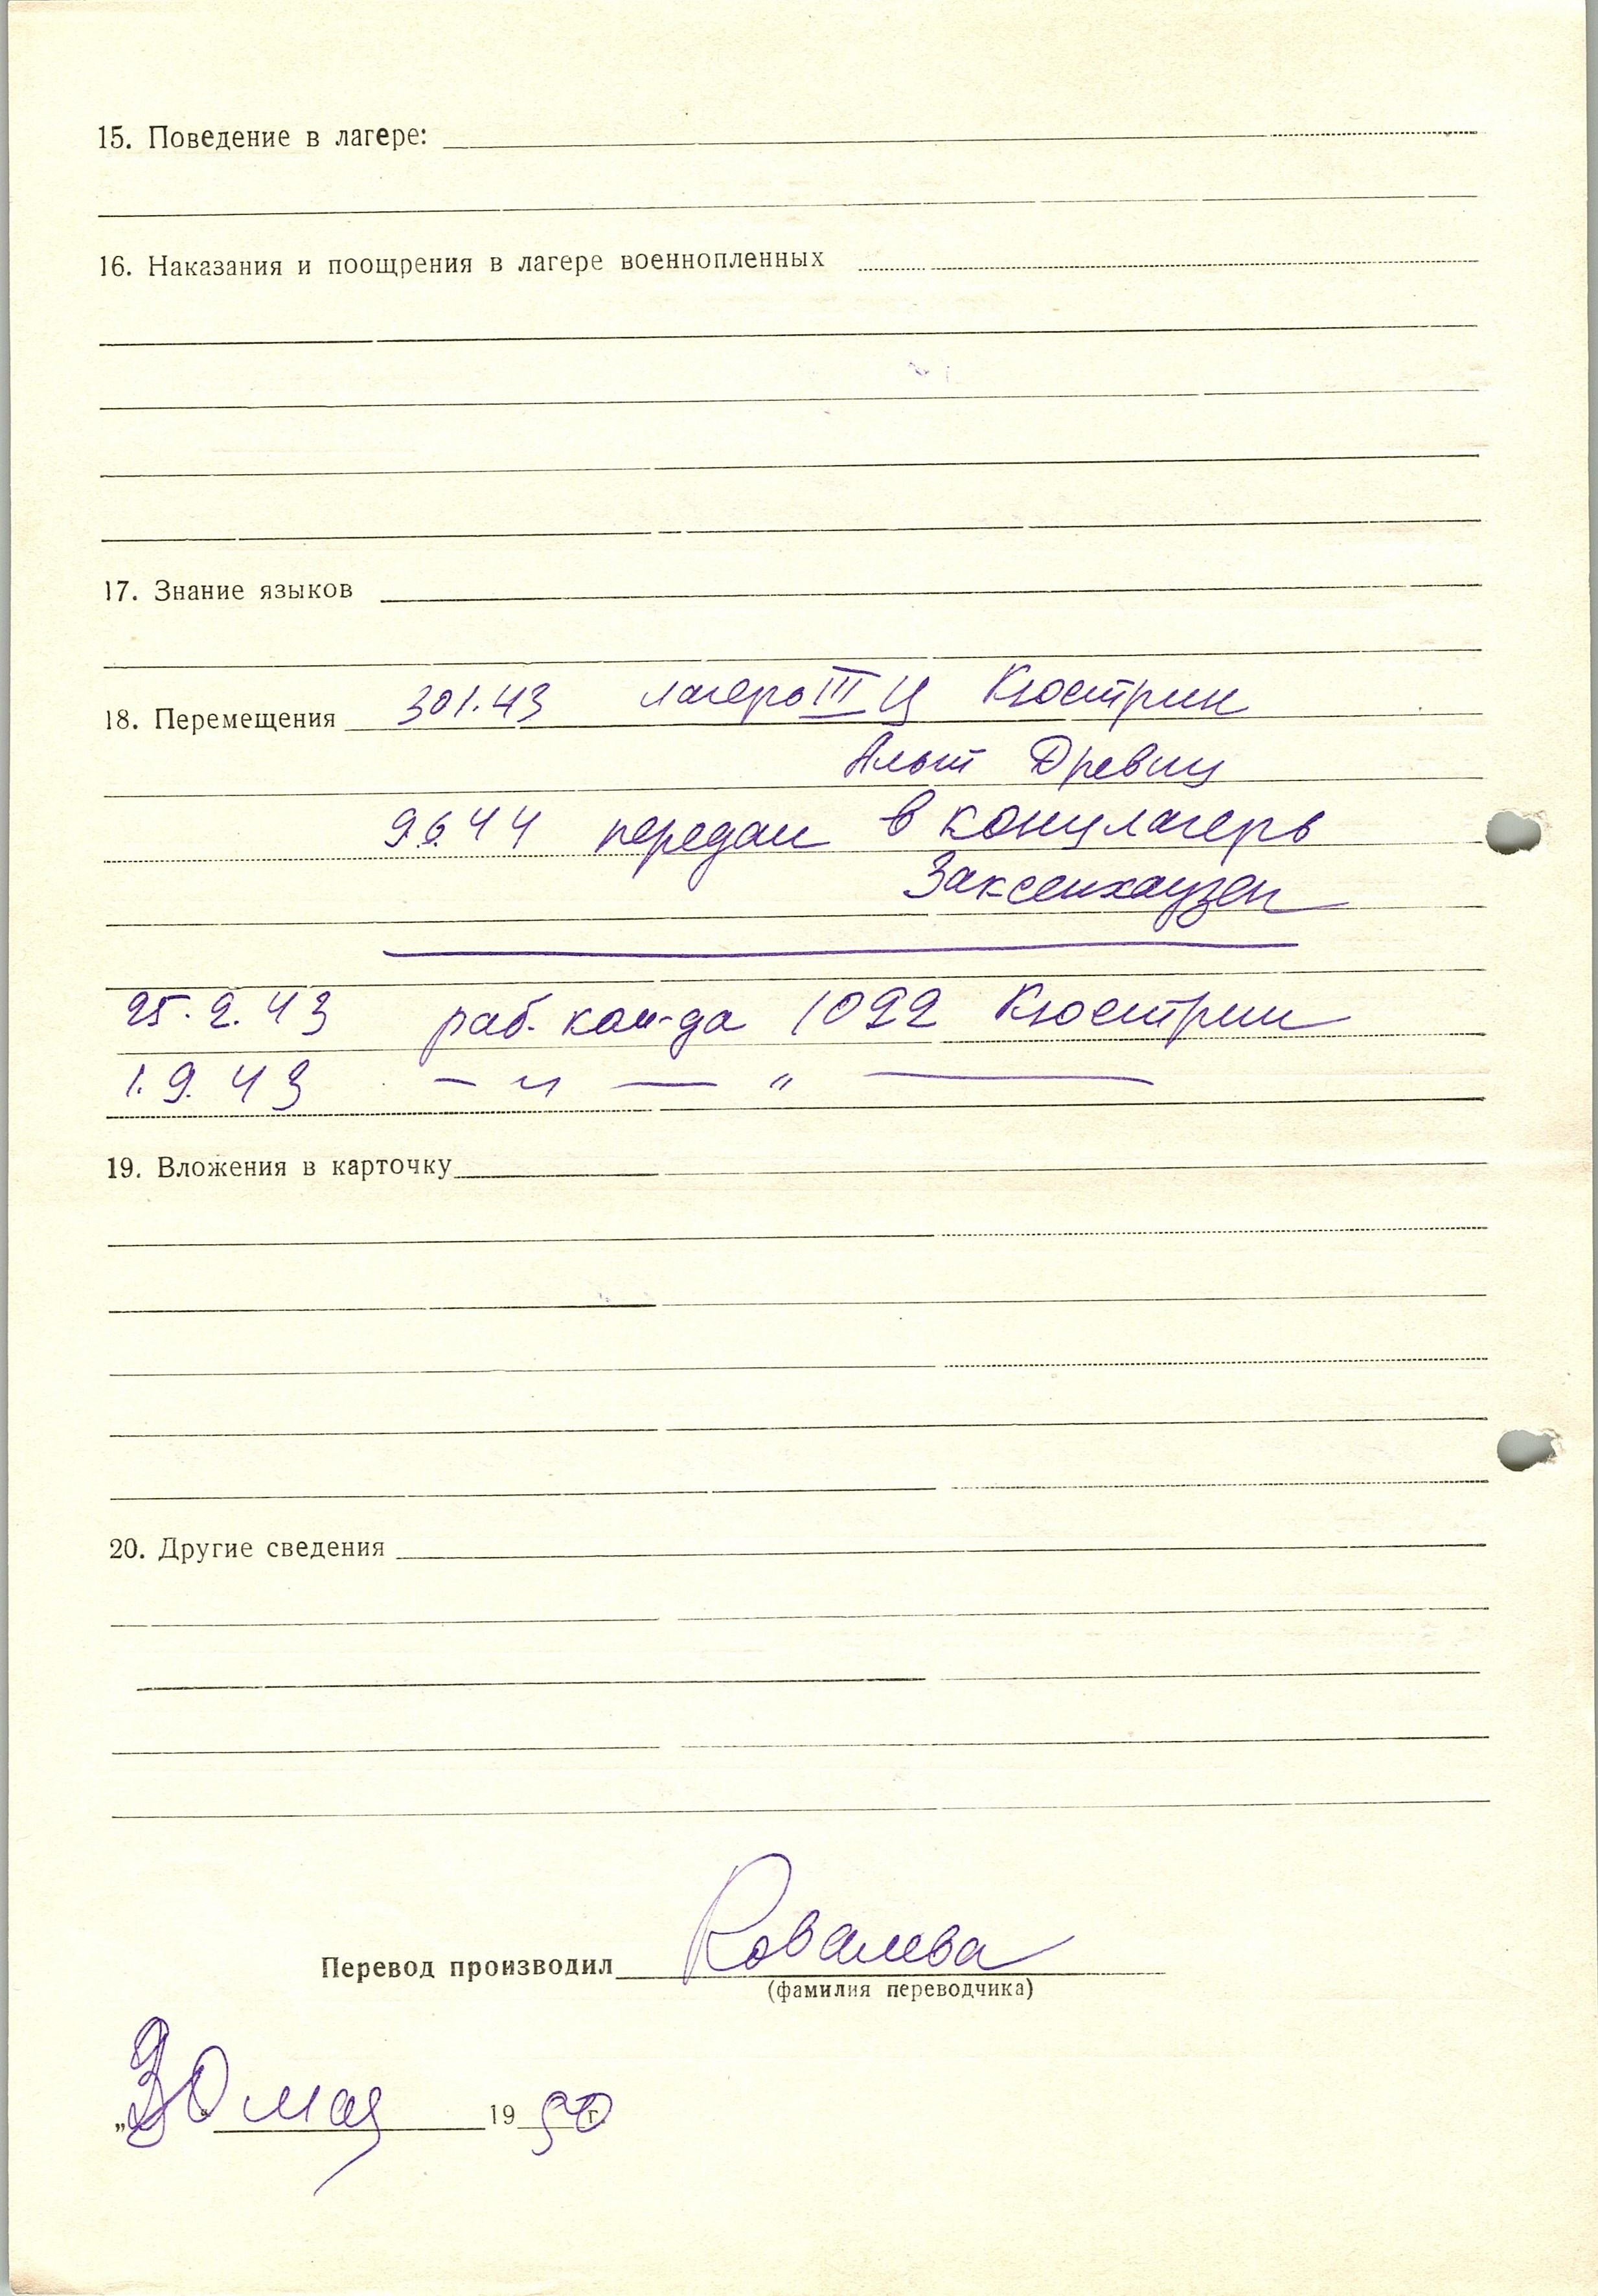 15. Поведение в лагере:
16. Наказания и поощрения в лагере военнопленных
17. Знание языков
18. Перемещения 30 1. 43 лагерь III Ц Кюстрин
Альт Древиц
9.6.44 передан в концлагерь
Заксенхаузен
25. 2. 43 раб. ком-да 1022 Кюстрин
1. 9. 43 — " — " —
19. Вложения в карточку
20. Другие сведения
Перевод производил Ковалева
(фамилия переводчика)
„30" мая 1950 г.